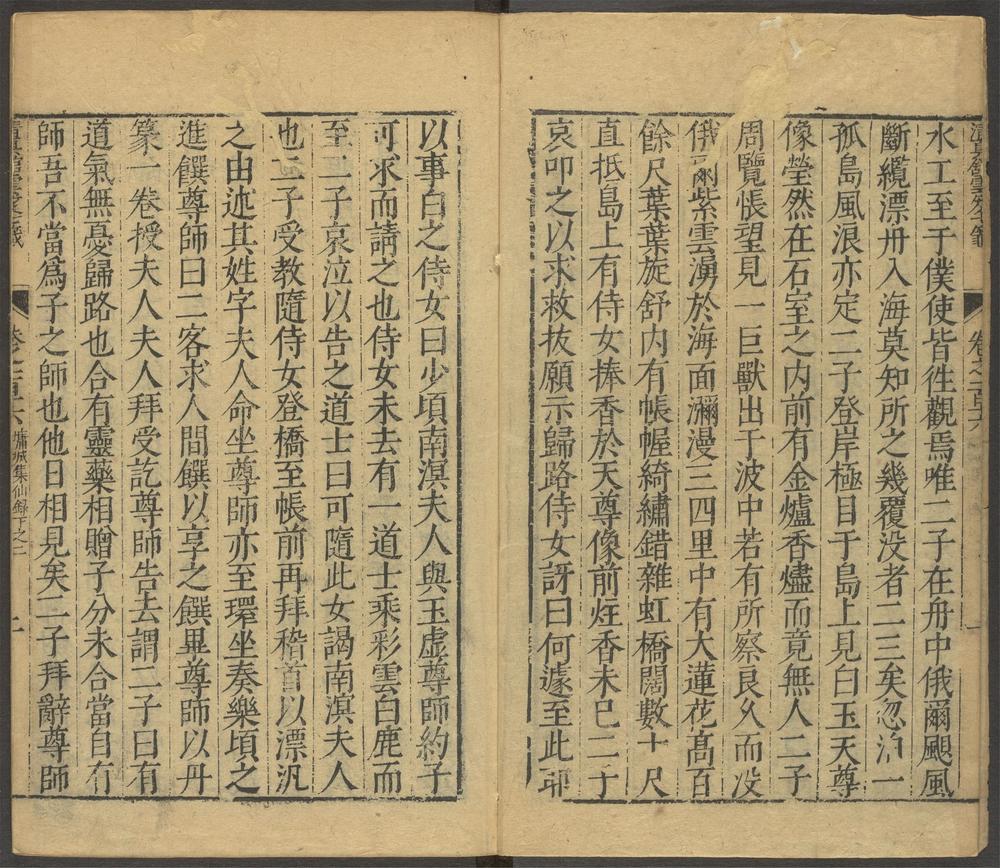 水工至于僕使皆徃觀焉唯二子在舟中俄爾颶風
斷纜漂舟入海莫知所之幾覆没者二三矣忽泊一
孤島風浪亦定二子登岸極目于島上見白玉天尊
像瑩然在石室之内前有金爐香燼而竟無人二子
周覽悵望見一巨獸出于波中若有所察良久而没
俄爾紫雲湧於海面瀰漫三四里中有大蓮花髙百
餘尺葉葉旋舒内有帳幄綺繡錯雜虹橋闊數十尺
直抵島上有侍女捧香於天尊像前炷香未已二子
哀叩之以求救拔願示歸路侍女訝曰何遽至此耶
以事白之侍女曰少頃南溟夫人與玉虚尊師約子
可求而請之也侍女未去有一道士乘彩雲白鹿而
至二子哀泣以告之道士曰可隨此女謁南溟夫人
也二子受教隨侍女登橋至帳前再拜稽首以漂汎
之由述其姓字夫人命坐尊師亦至環坐奏樂頃之
進饌尊師曰二客求人間饌以享之饌畢尊師以丹
篆一卷授夫人夫人拜受訖尊師告去謂二子曰有
道氣無憂歸路也合有靈藥相贈子分未合當自有
師吾不當爲子之師也他日相見矣二子拜辭尊師
卷之一百十六 墉城集仙録下之二